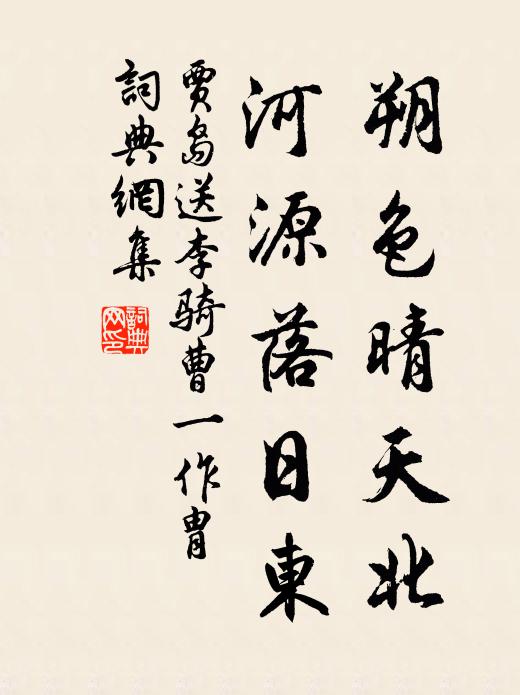 朔色晴天北
河源落日東
賈島送李騎曹一作冑
詞典網集
詞典网印